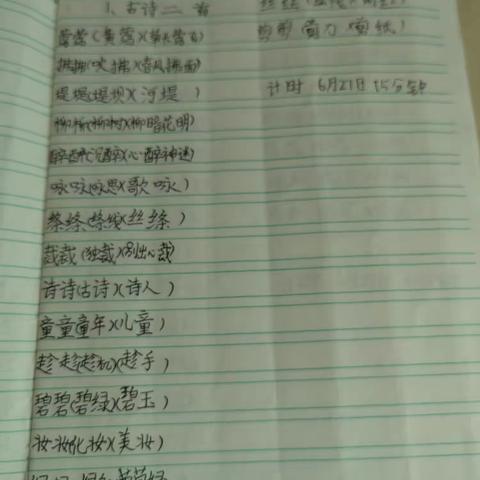 1、古诗二首
莺莺(黄莺)(草长莺飞)
拂拂(吹拂)(春风拂面)
堤堤(堤坝)(河堤)
柳柳(柳树)(柳暗花明)
醉醉(沉醉)(心醉神迷)
咏咏(咏思)(歌咏)
绦绦(绦线)(丝绦)
裁裁(独裁)(别出心裁)
诗诗(古诗)(诗人)
童童(童年)(儿童)
趁趁(趁机)(趁手)
碧碧(碧绿)(碧玉)
妆妆(化妆)(美妆)
丝丝
剪剪(剪刀)(剪纸)
计时 6月21日 15分钟